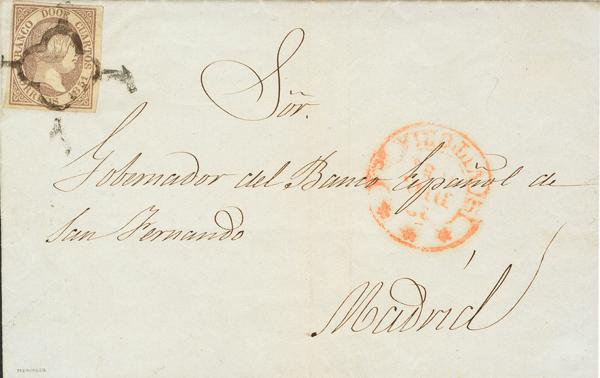 FRANCO DOCE CUARTOS 1851
CORREOS
Sōr.
Gobernador del Banco Español de
San Fernando
Madrid